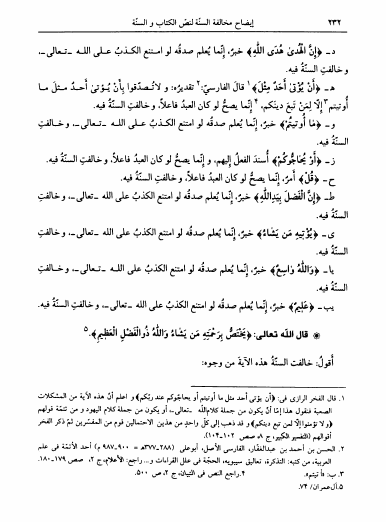 ٢٣٢ ایضاح مخالفة السنّة لنصّ الکتاب و السنّة
د ـ ﴿إِنَّ الْهُدَىٰ هُدَى اللَّهِ﴾ خبرٌ، إنّما یُعلم صدقُه لو امتنع الکذبُ علی الله ـ تعالی ـ،
و خالفتِ السنّةُ فیه.
هـ ـ ﴿أَنْ یُؤْتَىٰ أَحَدٌ مِثْلَ﴾١ قال الفارسيّ:٢ تقدیرُه: و لا تُصدّقوا بِأَنْ یُـؤتی أحـدٌ مـثلَ مـا
أُوتیتم٣ إلّا لِمَن تَبِعَ دینَکم،٤ إنّما یصحُّ لو کان العبدُ فاعلاً، و خالفتِ السنّةُ فیه.
و ـ ﴿مَا أُوتِیتُمْ﴾ خبرٌ، إنّما یُعلم صدقُه لو امتنع الکذبُ علی الله ـ تعالی ـ، و خالفتِ
السنّةُ فیه.
ز ـ ﴿أَوْ یُحَاجُّوکُمْ﴾ أُسندَ الفعلُ إلیهم، و إنّما یصحُّ لو کان العبدُ فاعلاً، و خالفتِ السنّةُ فیه.
ح ـ ﴿قُلْ﴾ أمرٌ، إنّما یصحُّ لو کان العبدُ فاعلاً، و خالفتِ السنّةُ فیه.
ط ـ ﴿إِنَّ الْفَضْلَ بِیَدِ اللَّهِ﴾ خبرٌ، إنّما یُعلم صدقُه لو امتنع الکذبُ علی الله ـ تعالی ـ، و خالفتِ
السنّةُ فیه.
ی ـ ﴿یُؤْتِیهِ مَن یَشَاءُ﴾ خبرٌ، إنّما یُعلم صدقُه لو امتنع الکذبُ علی الله ـ تعالی ـ، و خالفتِ
السنّةُ فیه.
یا ـ ﴿وَاللَّهُ وَاسِعٌ﴾ خبرٌ، إنّما یُعلم صدقُه لو امتنع الکذبُ علی الله ـ تـعالی ـ، و خـالفتِ
السنّةُ فیه.
یب ـ ﴿عَلِیمٌ﴾ خبرٌ، إنّما یُعلم صدقُه لو امتنع الکذبُ علی الله ـ تعالی ـ، و خالفتِ السنّةُ فیه.
❊ قال اللّه تعالی: ﴿یَخْتَصُّ بِرَحْمَتِهِ مَن یَشَاءُ وَاللَّهُ ذُو الْفَضْلِ الْعَظِیمِ﴾.٥
أقولُ: خالفت السنّةُ هذه الآیةَ من وجوه:
١. قال الفخر الرازی فی: ﴿أن یؤتی أحد مثل ما أوتیتم أو یحاجوکم عند ربّکم﴾ و اعلم أنّ هذه الآیة من المشکلات
الصعبة فنقول هذا إمّا أن یکون من جملة کلام اللّه ـ تعالی ـ، أو یکون من جملة کلام الیهود و من تتمّة قولهم
﴿و لا تؤمنوا إلّا لمن تبع دینکم﴾ و قد ذهب إلی کلّ واحدٍ من هذین الاحتمالین قوم من المفسّرین ثمّ ذکر الفخر
أقوالهم (التفسیر الکبیر، ج ٨، صص ١٠٢ـ١٠٤).
٢. الحسن بن أحمد بن عبدالغفّار، الفارسي الأصل، أبوعلي (٢٨٨ـ٣٧٧ه = ٩٠٠ـ٩٨٧ م) أحد الأئمّة في علم
العربیة، من کتبه: التذکرة، تعالیق سیبویه، الحجّة في علل القراءات و... راجع: الأعلام، ج ٢، صص ١٧٩ـ١٨٠.
٣. ب: «أوتیتم». ٤. راجع النص في التبیان، ج ٢، ص ٥٠٠.
٥. آل عمران / ٧٤.